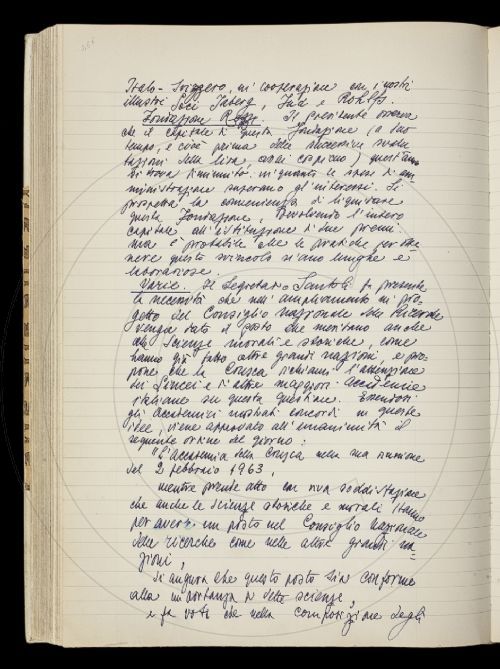 Italo-Svizzero, in cooperazione con i nostri
illustri Soci Jaberg, Jud e Rohlfs.
Fondazione Rezzi. Il Presidente osserva
che il capitale di questa Fondazione (a suo
tempo, e cioè prima delle successive svalu-
tazioni della lira, assai cospicuo) quest'anno
si trova diminuito in quanto le spese di am-
ministrazione superano gl'interessi. Si
prospetta la convenienza di liquidare
questa Fondazione, devolvendo l'intero
capitale all'istituzione di due premi.
ma è probabile che le pratiche per otte-
nere questo svincolo siano lunghe e
laboriose.
Varie. Il Segretario Santoli fa presente
la necessità che nell'ampliamento in pro-
getto del Consiglio Nazionale delle Ricerche
venga dato il posto che meritano anche
alle Scienze morali e storiche, come
hanno già fatto altre grandi nazioni, e pro-
pone che la Crusca richiami l'attenzione
dei Lincei e d'altre maggiori Accademie
italiane su questa questione. Essendosi
gli Accademici mostrati concordi in queste
idee, viene approvato all'unanimità il
seguente ordine del giorno:
"L'Accademia della Crusca nella sua riunione
del 2 febbraio 1963,
mentre prende atto con viva soddisfazione
che anche le scienze storiche e morali stanno
per avere un posto nel Consiglio Nazionale
delle ricerche come nelle altre grandi na-
zioni,
si augura che questo posto sia conforme
alla importanza di dette scienze,
e fa voti che nella composizione degli